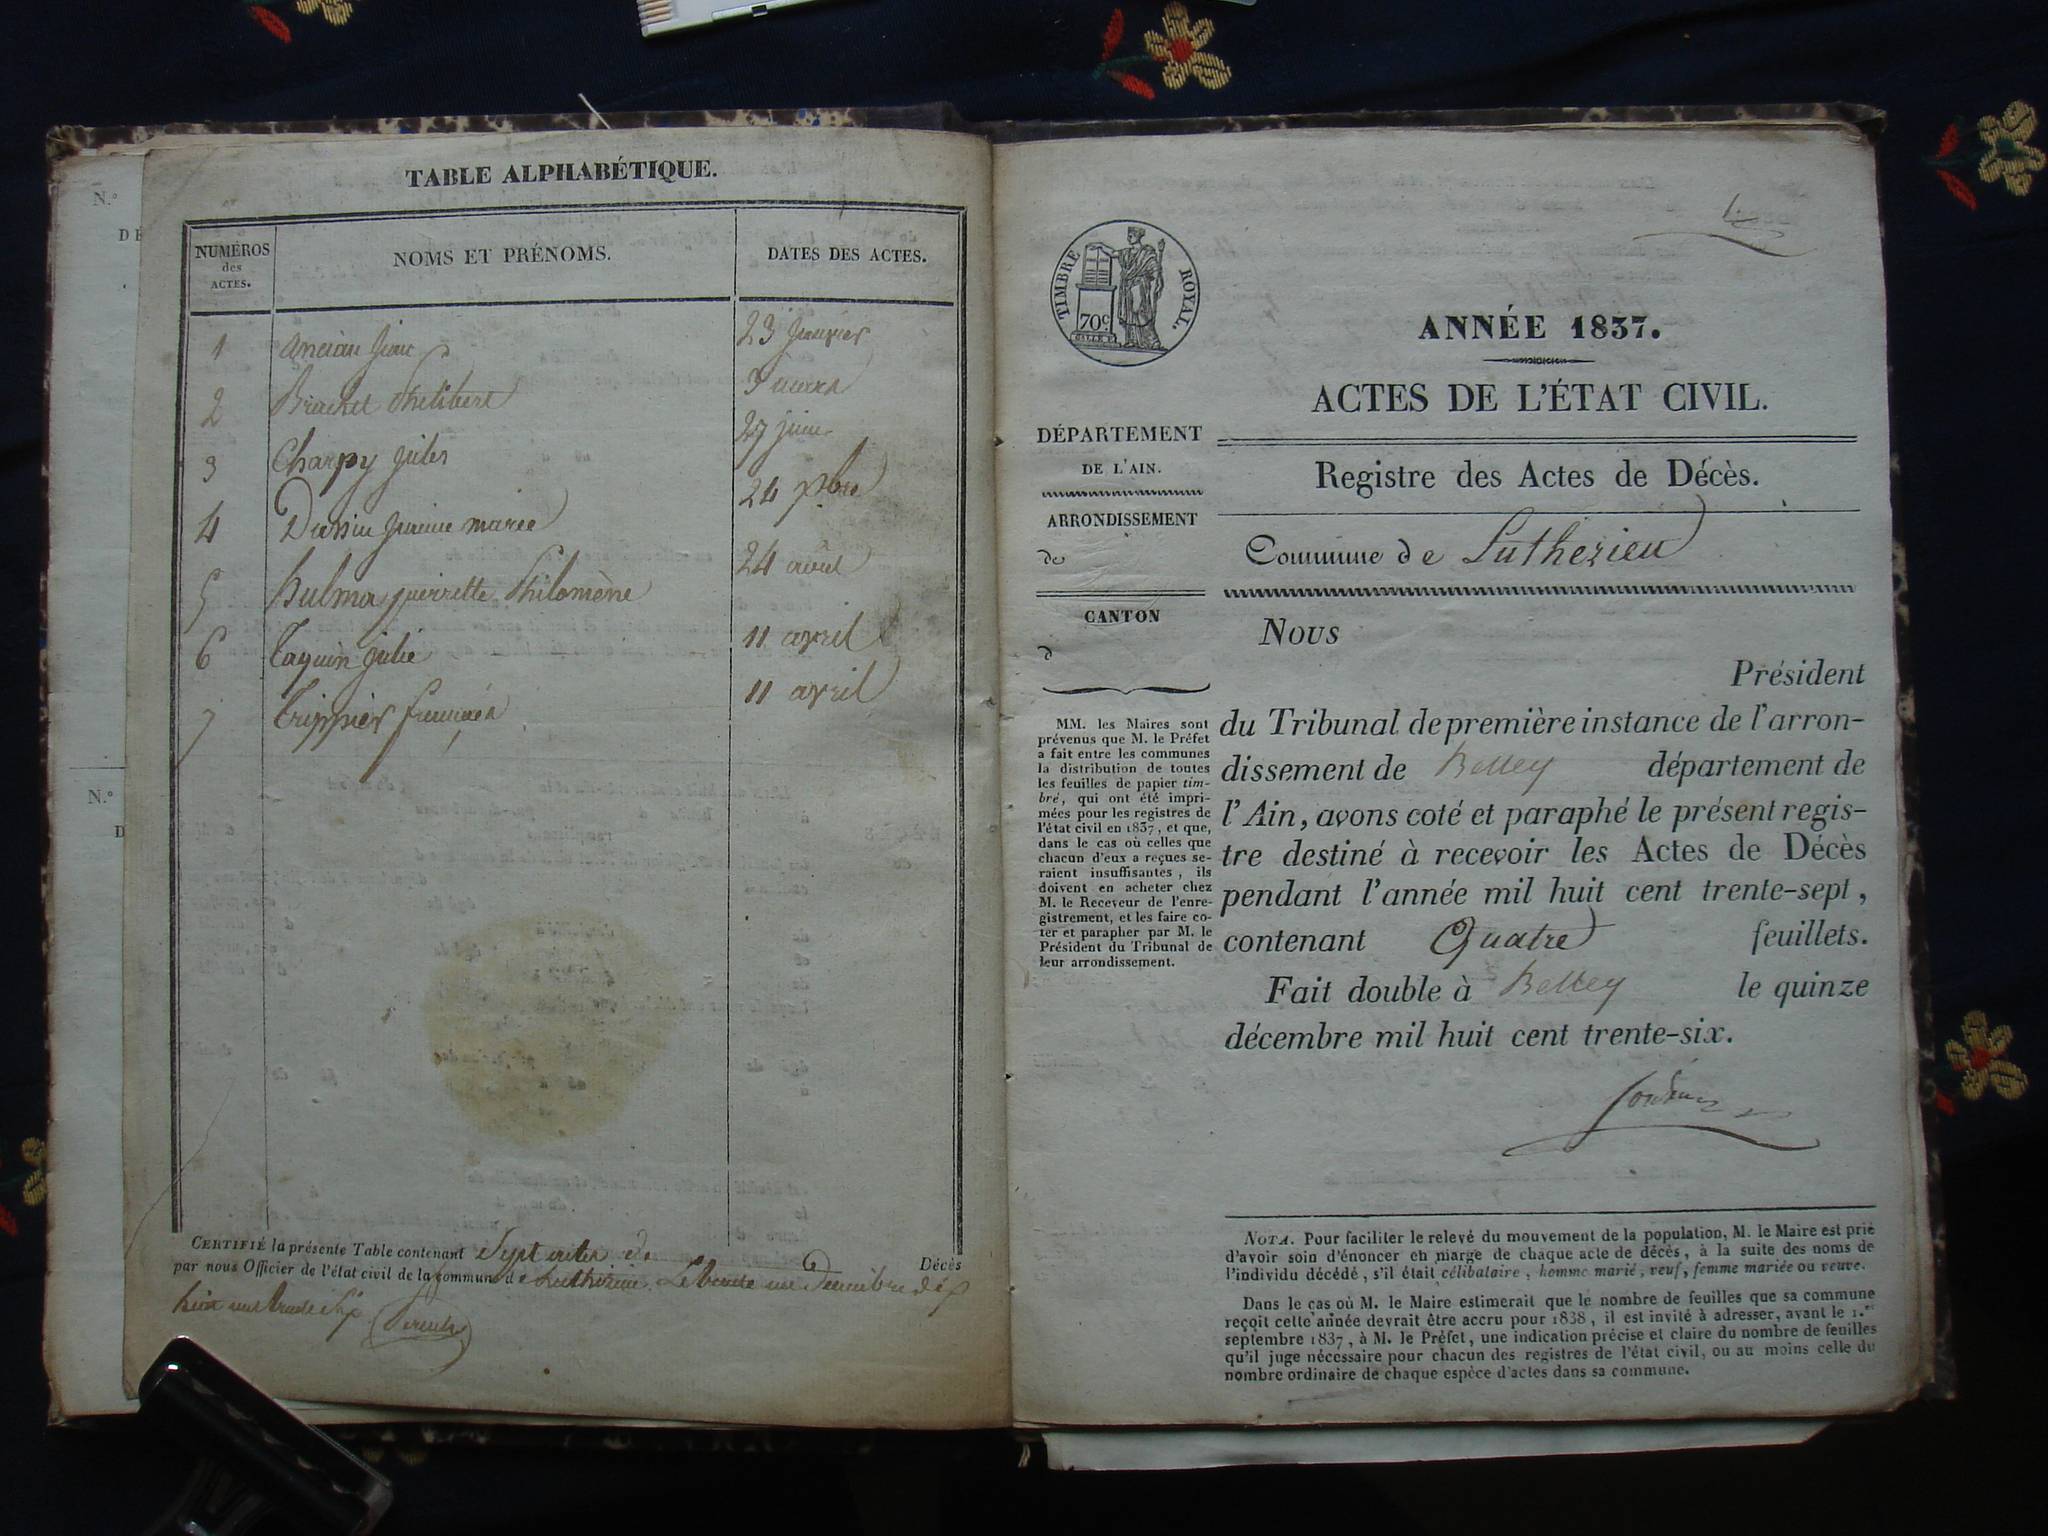 N.º
DÉ
N.º
D
TABLE ALPHABÉTIQUE.
NUMÉROS
des
ACTES.
NOMS ET PRÉNOMS.
DATES DES ACTES.
1 Ancian 23 janvier
2 Brachet Philibert 3 mars
3 Charpy Jules 27 juin
4 Dussin Jeanne marie 24 7bre
5 hulma pierrette Philomène 24 août
6 Taquin julie 11 avril
7 Trippier 11 avril
CERTIFIÉ la présente Table contenant Sept actes de Décès
par nous Officier de l'état civil de la commune de Luthezieu. Le trente un Decembre
huit cent trente
1.
TIMBRE ROYAL.
70 c
ANNÉE 1837.
ACTES DE L'ÉTAT CIVIL.
DÉPARTEMENT
DE L'AIN.
ARRONDISSEMENT
de
CANTON
d
MM. les Maires sont
prévenus que M. le Préfet
a fait entre les communes
la distribution de toutes
les feuilles de papier tim-
bré, qui ont été impri-
mées pour les registres de
l'état civil en 1837, et que,
dans le cas où celles que
chacun d'eux a reçues se-
raient insuffisantes, ils
doivent en acheter chez
M. le Receveur de l'enre-
gistrement, et les faire co-
ter et parapher par M. le
Président du Tribunal de
leur arrondissement.
Registre des Actes de Décès.
Commune de Luthezieu
Nous
Président
du Tribunal de première instance de l'arron-
dissement de Belley département de
l'Ain, avons coté et paraphé le présent regis-
tre destiné à recevoir les Actes de Décès
pendant l'année mil huit cent trente-sept,
contenant Quatre feuillets.
Fait double à Belley le quinze
décembre mil huit cent trente-six.
NOTA. Pour faciliter le relevé du mouvement de la population, M. le Maire est prié
d'avoir soin d'énoncer en marge de chaque acte de décès, à la suite des noms de
l'individu décédé, s'il était célibataire, homme marié, veuf, femme mariée ou veuve.
Dans le cas où M. le Maire estimerait que le nombre de feuilles que sa commune
reçoit cette année devrait être accru pour 1838, il est invité à adresser, avant le 1.er
septembre 1837, à M. le Préfet, une indication précise et claire du nombre de feuilles
qu'il juge nécessaire pour chacun des registres de l'état civil, ou au moins celle du
nombre ordinaire de chaque espèce d'actes dans sa commune.